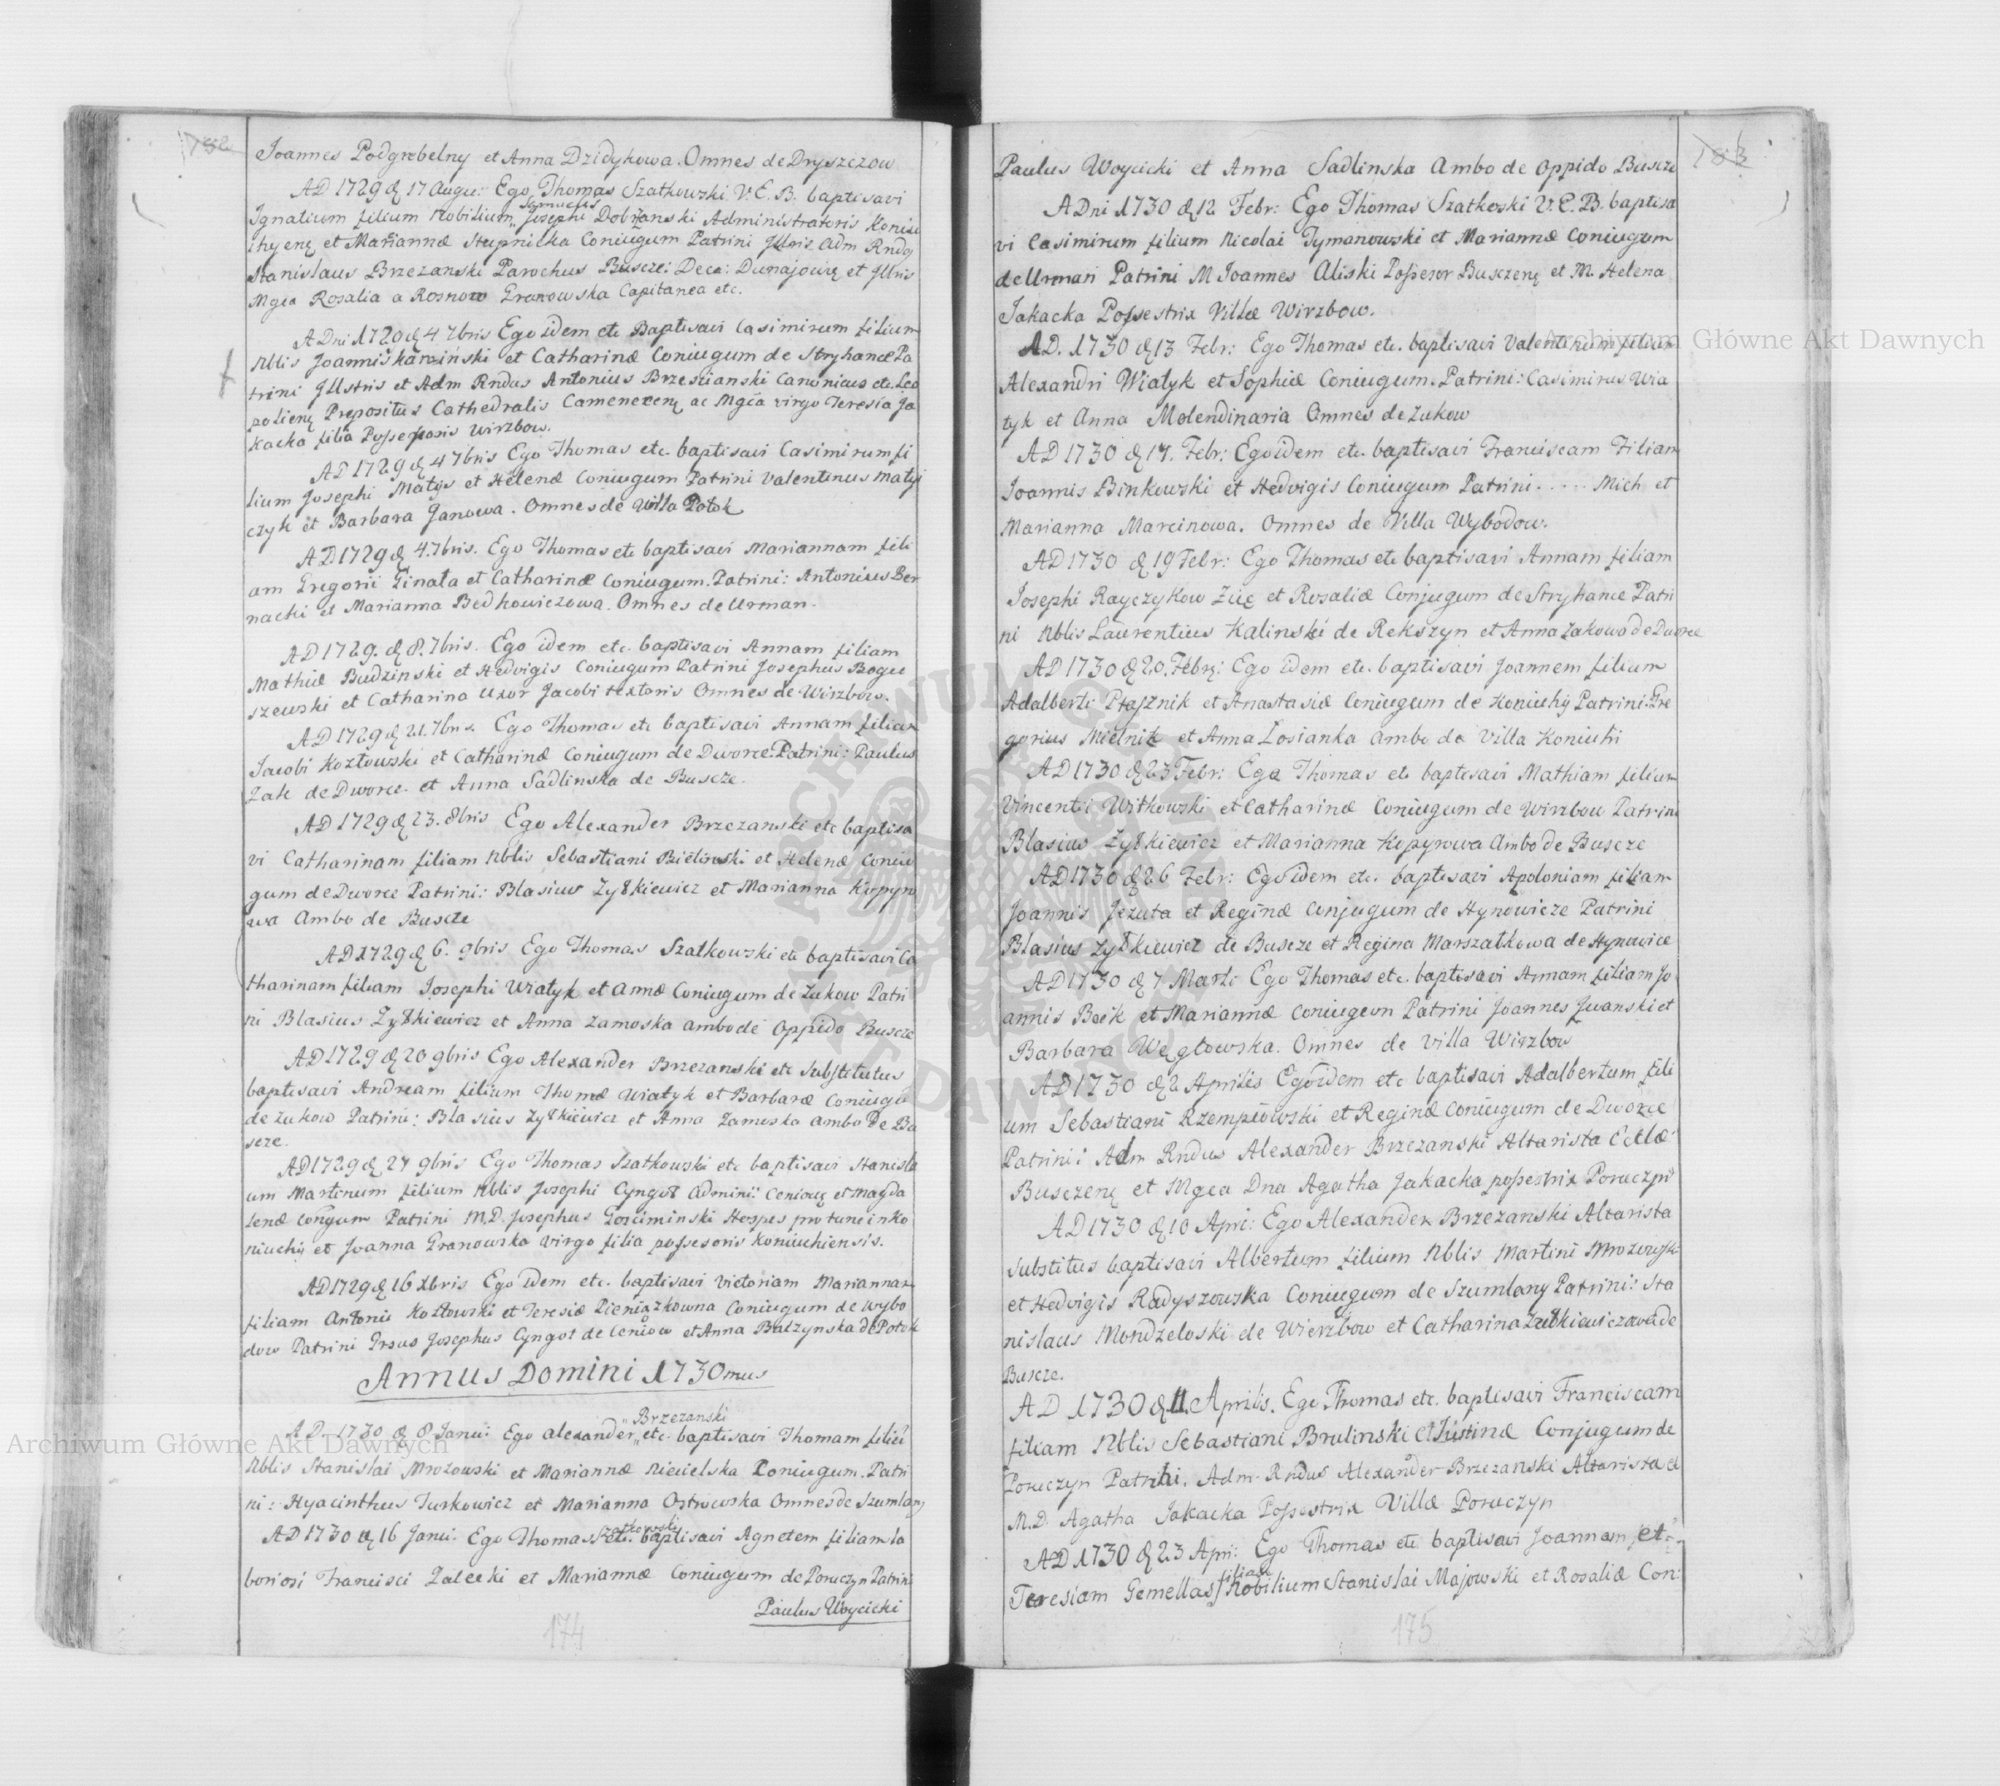 182
Joannes Podgrebelny et Anna Dzidykowa. Omnes de Dryszczow
AD 1729 d 17 Augu: Ego Thomas Szatkowski V. C. B. baptisavi
Ignatium filium Nobilium Josephi Dobrzanski Administratoris Koniu
chyenę et Mariannæ Stupnicka Coniugum Patrini Jllris Adm Rndg
Stanislaus Brzezanski Parochus Buscze: Deca: Dunajovię et Jllris
Mgca Rosalia a Rosnow Granowska Capitanea etc.
ADni 1720 d 4 7bris Ego idem etc Baptisavi Casimirum filium
Nblis Joannis Karsiński et Catharinæ Coniugum de Stryhancæ Pa
trini Jllstris et Adm Rndus Antonius Brzescianski Canonicus etc. Leo
polienę Prepositus Cathedralis Camenecenę ac Mgca virgo Teresia Ja
kacka filia Possessoris Wirzbow.
AD 1729 d 4 7bris Ego Thomas etc. baptisavi Casimirum fi
lium Josephi Matys et Helenæ Coniugum Patrini Valentinus Matyi
czyk et Barbara Janowa. Omnes de Villa Potok
AD. 1729 d 4. 7bris. Ego Thomas etc baptisavi Mariannam fili
am Gregorii Ginata et Catharinæ Coniugum. Patrini: Antonius Ber
nacki et Marianna Bedkowiczowa. Omnes de Urman.
AD 1729. d 8. 7bris. Ego idem etc. baptisavi Annam filiam
Mathiæ Budzinski et Hedvigis Coniugum Patrini Josephus Bogu
szewski et Catharina Uxor Jacobi textoris Omnes de Wirzbow.
AD 1729 d 21. 7bris. Ego Thomas etc baptisavi Annam filiam
Jacobi Kozłowski et Catharinæ Coniugum de Dworce. Patrini: Paulus
Zak de Dworce. et Anna Sadlinska de Buscze.
AD 1729 d 23. 8bris Ego Alexander Brzezanski etc baptisa
vi Catharinam filiam Nblis Sebastiani Bielinski et Helenæ Coniu
gum de Dworce Patrini: Blasius Zyłkiewicz et Marianna Kopyro
wa Ambo de Buscze
AD 1729 d 6. 9bris Ego Thomas Szatkowski etc baptisavi Ca
tharinam filiam Josephi Wiatyk et Annæ Coniugum de Zukow Patri
ni Blasius Zyłkiewicz et Anna Zamoska ambo de Oppido Buscze
AD 1729 d 20 9bris Ego Alexander Brzezanski etc Substitutus
baptisavi Andream filium Thomæ Wiatyk et Barbaræ Coniugũ
de Zukow Patrini: Blasius Zyłkiewicz et Anna Zamoska ambo de Bu
scze.
AD 1729 d 27 9bris Ego Thomas Szatkowski etc baptisavi Stanisla
um Martinum filium Nblis Josephi Cyngot Admini: Ceniovię et Magda
lenæ Congum Patrini M.D. Josephus Gosciminski Hospes pro tunc in Ko
niuchy et Joanna Granowska virgo filia possesoris Koniuchiensis.
AD 1729 d 16 Xbris Ego idem etc. baptisavi Victoriam Mariannam
filiam Antonii Kozłowski et Teresiæ Pieniązkowna Coniugum de Wybo
dow Patrini Grsus Josephus Cyngot de Ceniow et Anna Baczynska de Potok
Annus Domini 1730mus
Brzezanski
A D. 1730 d 8 Janu: Ego Alexander etc. baptisavi Thomam filiũ
Nblis Stanislai Mrozowski et Mariannæ Niecielska Coniugum. Patri
ni: Hyacinthus Turkowicz et Marianna Ostrowska Omnes de Szumlany
Szatkowski
AD 1730 d 16 Janu: Ego Thomas etc. baptisavi Agnetem filiam la
boriosi Francisci Zalecki et Mariannæ Coniugum de Poruczyn Patrini
Paulus Woycicki
174
183
Paulus Woycicki et Anna Sadlinska Ambo de Oppido Buscze
ADni 1730 d 12 Febr: Ego Thomas Szatkoski V. C. B. baptisa
vi Casimirum filium Nicolai Tymanowski et Mariannæ Coniugum
de Urman Patrini M Joannes Aliski Possesor Busczenę et M. Helena
Jakacka Possestrix Villæ Wirzbow.
AD. 1730 d 13 Febr: Ego Thomas etc. baptisavi Valentinum filium
Alexandri Wiatyk et Sophiæ Coniugum. Patrini: Casimirus Wia
tyk et Anna Molendinaria Omnes de Zukow
AD 1730 d 17. Febr: Ego idem etc. baptisavi Franciscam Filiam
Joannis Binkowski et Hedvigis Coniugum Patrini ..... Mich et
Marianna Marcinowa. Omnes de Villa Wybodow.
AD 1730 d 19 Febr: Ego Thomas etc baptisavi Annam filiam
Josephi Rayczykow Zię et Rosaliæ Conjugum de Stryhance Patri
ni Nblis Laurentius Kalinski de Rekszyn et Anna Zakowa de Dworce
AD 1730 d 20. Febr: Ego idem etc. baptisavi Joannem filium
Adalberti Ptasznik et Anastasiæ Coniugum de Koniuhy Patrini: Gre
gorius Mielnik et Anna Losianka Ambo de Villa Koniuhi
AD 1730 d 23 Febr: Ego Thomas etc baptisavi Mathiam filium
Vincentii Witkowski et Catharinæ Coniugum de Wirzbow Patrini
Blasius Zyłkiewicz et Marianna Kopyrowa Ambo de Buscze
AD 1730 d 26 Febr: Ego idem etc. baptisavi Apoloniam filiam
Joannis Jezuta et Reginæ Conjugum de Hynowicze Patrini
Blasius Zyłkiewicz de Buscze et Regina Marszałkowa de Hynowice
AD 1730 d 7 Marti Ego Thomas etc. baptisavi Annam filiam Jo
annis Becik et Mariannæ Coniugum Patrini Joannes Jwanski et
Barbara Węgłowska. Omnes de Villa Wirzbow
AD 1730 d 2 Aprilis Ego idem etc baptisavi Adalbertum fili
um Sebastiani Rzempiowski et Reginæ Coniugum de Dworce
Patrini: Adm Rndus Alexander Brzezanski Altarista Ecclæ
Busczenę et Mgca Dna Agatha Jakacka possestrix Poruczyn
AD 1730 d 10 Apri: Ego Alexander Brzezanski Altarista
Substitus baptisavi Albertum filium Nblis Martini Mrozowski
et Hedvigis Radyszowska Coniugum de Szumlany Patrini: Sta
nislaus Mondzeloski de Wierzbow et Catharina Zułkiewiczowa de
Buscze.
AD 1730 d 11. Aprilis. Ego Thomas etc. baptisavi Franciscam
filiam Nblis Sebastiani Brulinski et Justinæ Conjugum de
Poruczyn Patrini. Adm. Rndus Alexander Brzezanski Altarista et
M.D. Agatha Jakacka Possestrix Villæ Poruczyn
AD 1730 d 23 Apri: Ego Thomas etc baptisavi Joannam et
filias
Teresiam Gemellas Nobilium Stanislai Majowski et Rosaliæ Con:
175
Archiwum Główne Akt Dawnych
Archiwum Główne Akt Dawnych
ARCHIWUM GŁÓWNE AKT DAWNYCH